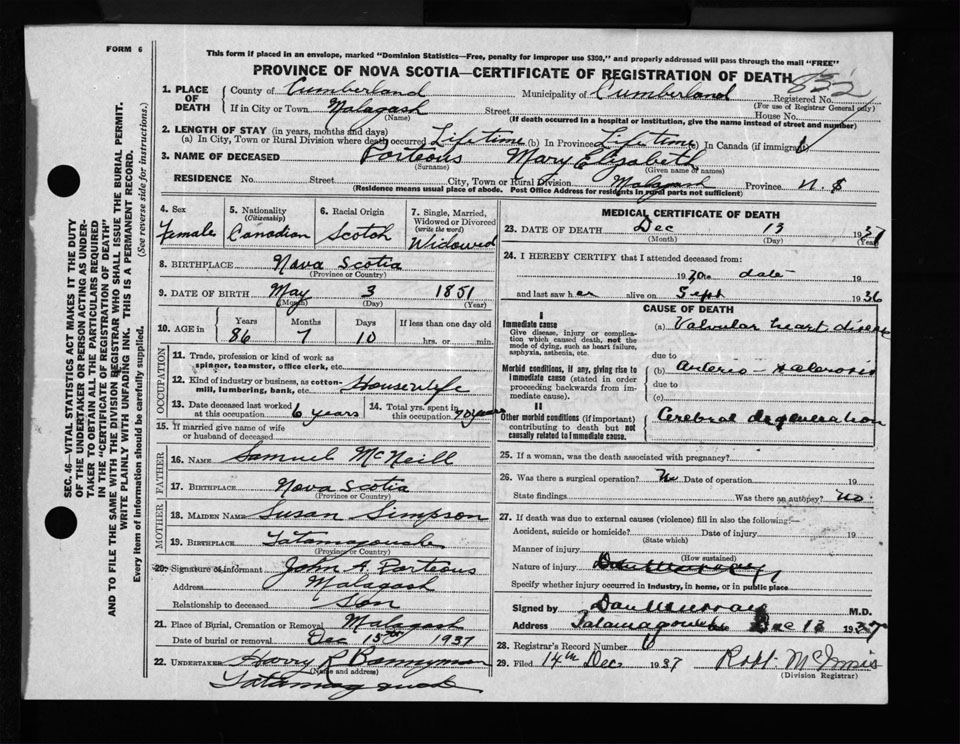 FORM 6
This form if placed in an envelope, marked "Dominion Statistics—Free, penalty for improper use $300," and properly addressed will pass through the mail "FREE"
PROVINCE OF NOVA SCOTIA—CERTIFICATE OF REGISTRATION OF DEATH
832
1. PLACE OF DEATH
County of Cumberland Municipality of Cumberland Registered No.
(For use of Registrar General only)
If in City or Town Malagash Street House No.
(Name) (If death occurred in a hospital or institution, give the name instead of street and number)
2. LENGTH OF STAY (in years, months and days)
(a) In City, Town or Rural Division where death occurred Lifetime (b) In Province Lifetime In Canada (if immigrant)
3. NAME OF DECEASED Porteous Mary Elizabeth
(Surname) (Given name or names)
RESIDENCE No. Street City, Town or Rural Division Malagash Province N.S
(Residence means usual place of abode. Post Office Address for residents in rural parts not sufficient)
4. Sex Female
5. Nationality (Citizenship) Canadian
6. Racial Origin Scotch
7. Single, Married, Widowed or Divorced (write the word) Widowed
8. BIRTHPLACE Nova Scotia
(Province or Country)
9. DATE OF BIRTH May 3 1851
(Month) (Day) (Year)
10. AGE in Years Months Days If less than one day old
86 7 10 hrs. or min.
OCCUPATION
11. Trade, profession or kind of work as spinner, teamster, office clerk, etc.
12. Kind of industry or business, as cotton-mill, lumbering, bank, etc. Housewife
13. Date deceased last worked at this occupation 6 years
14. Total yrs. spent in this occupation 70 years
15. If married give name of wife or husband of deceased
FATHER
16. NAME Samuel McNeill
17. BIRTHPLACE Nova Scotia
(Province or Country)
MOTHER
18. MAIDEN NAME Susan Simpson
19. BIRTHPLACE Tatamagouche
(Province or Country)
20. Signature of informant John A. Porteous
Address Malagash
Relationship to deceased Son
21. Place of Burial, Cremation or Removal Malagash
Date of burial or removal Dec 15th 1937
22. UNDERTAKER Harry R Bonnyman
(Name and address)
Tatamagouche
MEDICAL CERTIFICATE OF DEATH
23. DATE OF DEATH Dec 13 1937
(Month) (Day) (Year)
24. I HEREBY CERTIFY that I attended deceased from:
19 to date 19
and last saw her alive on Sept 1936
CAUSE OF DEATH
I
Immediate cause
Give disease, injury or complication which caused death, not the mode of dying, such as heart failure, asphyxia, asthenia, etc.
(a) Valvular heart disease
due to
Morbid conditions, if any, giving rise to immediate cause (stated in order proceeding backwards from immediate cause).
(b) Arterio-sclerosis
due to
(c)
II
Other morbid conditions (if important) contributing to death but not causally related to immediate cause.
Cerebral degeneration
25. If a woman, was the death associated with pregnancy?
26. Was there a surgical operation? No Date of operation 19
State findings Was there an autopsy? No
27. If death was due to external causes (violence) fill in also the following:—
Accident, suicide or homicide? Date of injury 19
(State which)
Manner of injury
(How sustained)
Nature of injury Dan Murray
Specify whether injury occurred in industry, in home, or in public place
Signed by Dan Murray M.D.
Address Tatamagouche Dec 13 1937
28. Registrar's Record Number
29. Filed 14th Dec 1937 Robt. McInnis
(Division Registrar)
SEC. 46—VITAL STATISTICS ACT MAKES IT THE DUTY
OF THE UNDERTAKER OR PERSON ACTING AS UNDER-
TAKER TO OBTAIN ALL THE PARTICULARS REQUIRED
IN THE "CERTIFICATE OF REGISTRATION OF DEATH"
AND TO FILE THE SAME WITH THE DIVISION REGISTRAR WHO SHALL ISSUE THE BURIAL PERMIT.
WRITE PLAINLY WITH UNFADING INK. THIS IS A PERMANENT RECORD.
Every item of information should be carefully supplied. (See reverse side for instructions.)